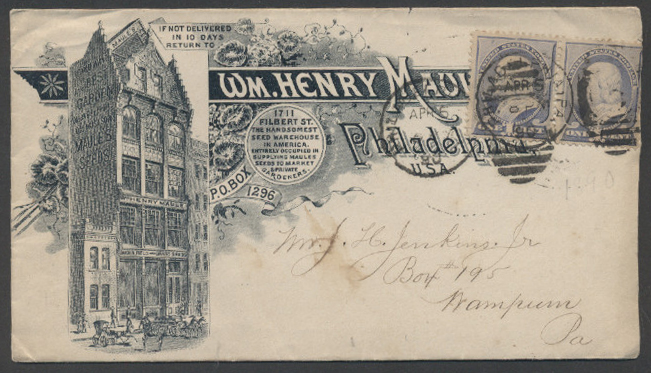 IF NOT DELIVERED
IN 10 DAYS
RETURN TO
WM. HENRY MAULE
1711
FILBERT ST.
THE HANDSOMEST
SEED WAREHOUSE
IN AMERICA.
ENTIRELY OCCUPIED IN
SUPPLYING MAULES
SEEDS TO MARKET
& PRIVATE
GARDENERS.
Philadelphia
U.S.A.
P.O. BOX
1296
HENRY MAULE
MAULES
SEEDS
APR 5
APR
Mr. J. H. Jenkins, Jr
Box # 195
Wampum
Pa
1890